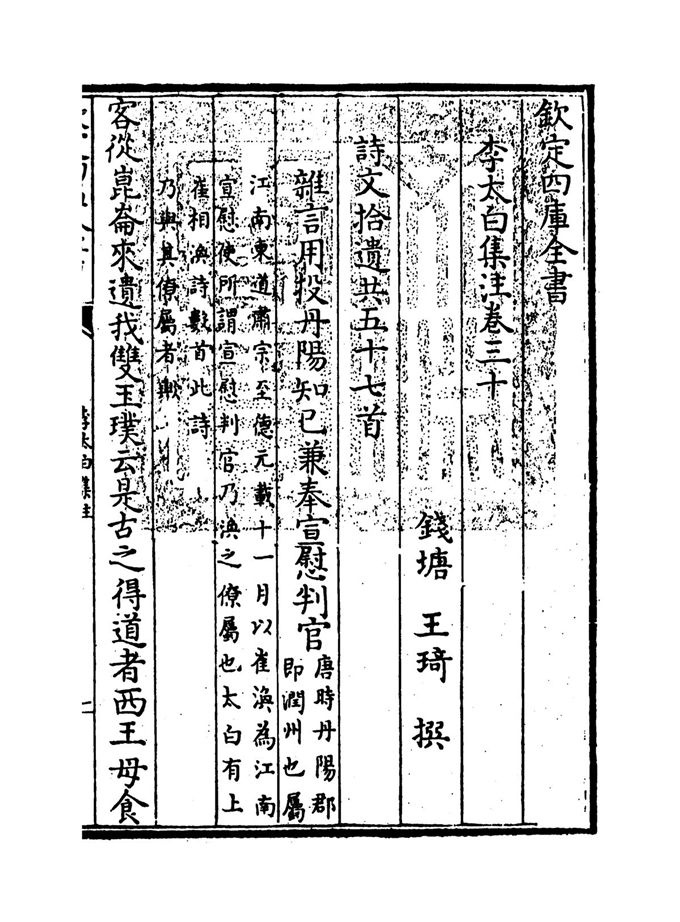 欽定四庫全書
李太白集注卷三十
錢塘 王琦 撰
詩文拾遺共五十七首
雜言用投丹陽知己兼奉宣慰判官
唐時丹陽郡
即潤州也屬
江南東道肅宗至德元載十一月以崔渙為江南
宣慰使所謂宣慰判官乃渙之僚屬也太白有上
崔相渙詩數首此詩
乃與其僚屬者歟
客從崑崙來遺我雙玉璞云是古之得道者西王母食
李太白集注